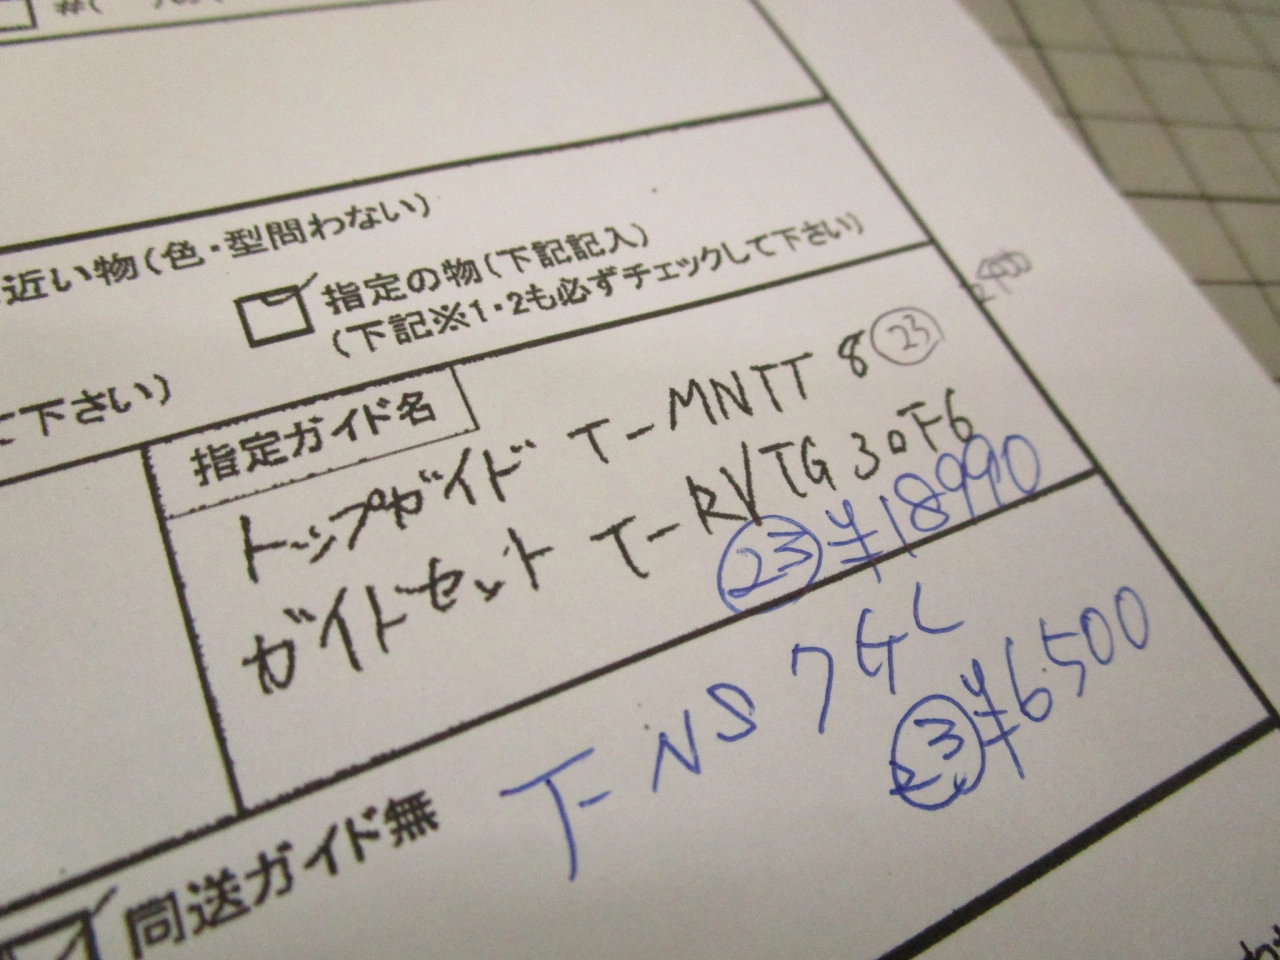 近い物(色・型問わない)
指定の物(下記記入)
(下記※1・2も必ずチェックして下さい)
て下さい)
指定ガイド名
トップガイド T-MNTT 8 23
ガイドセット T-RVTG 30F6
23 ¥18990
T-NS7GL
23 ¥6500
同送ガイド無